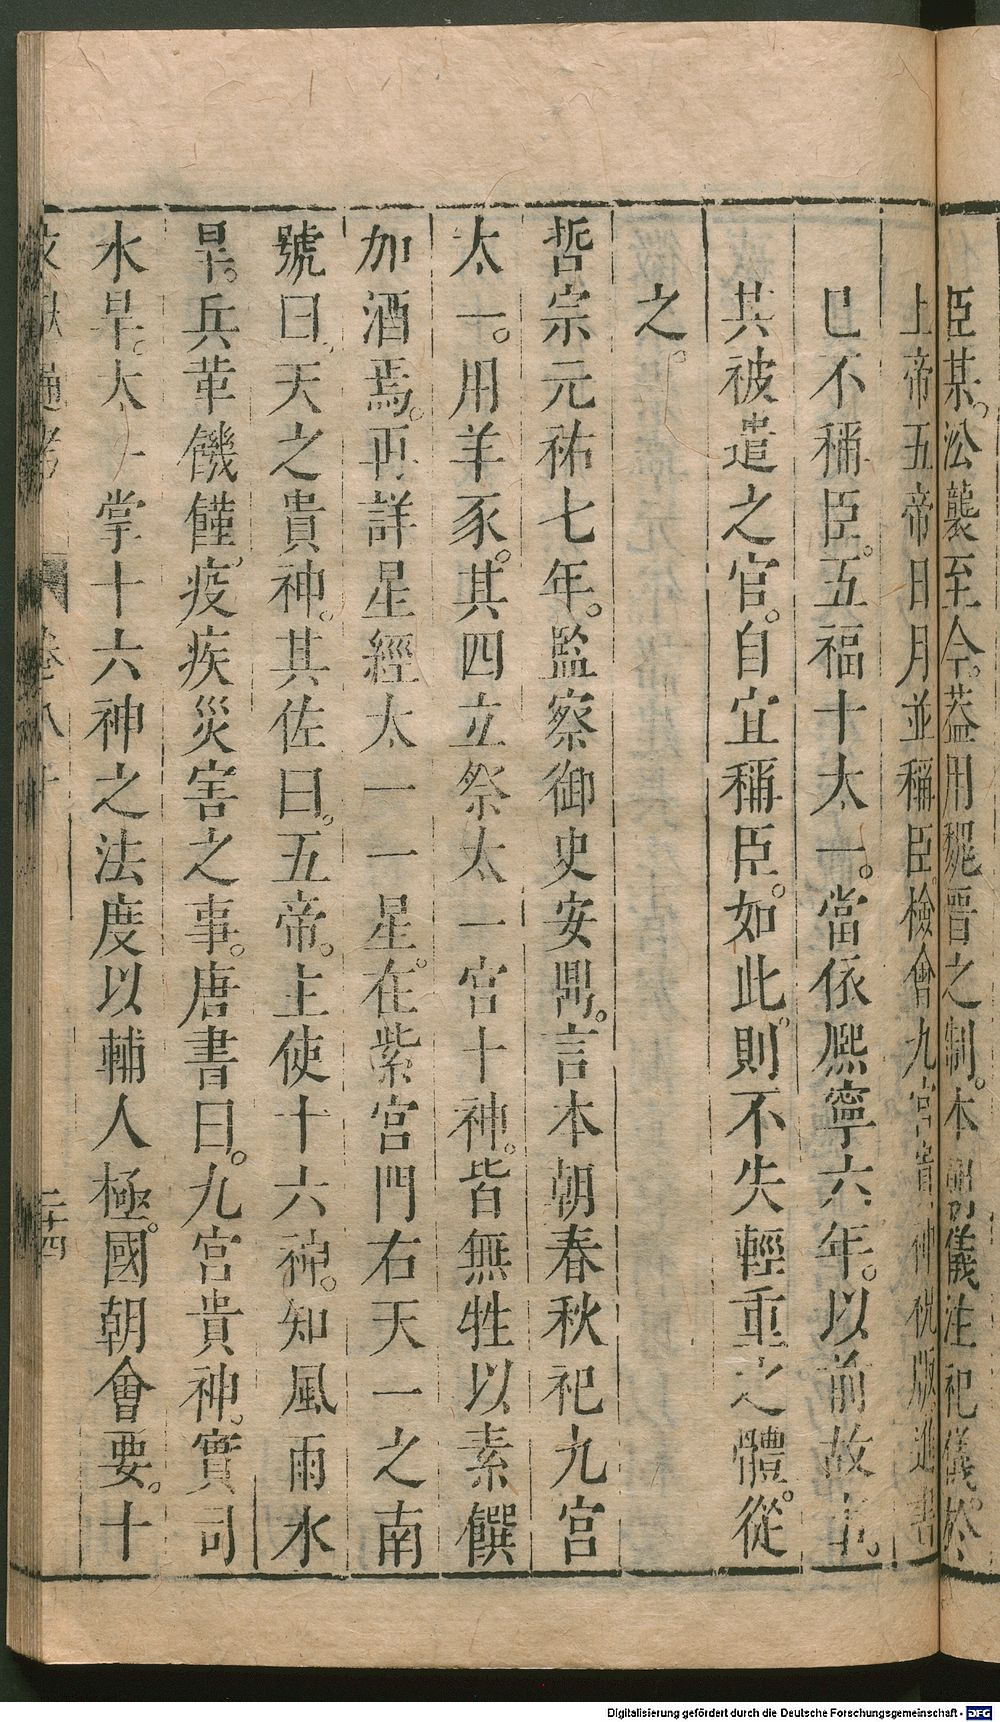 臣某。㳂襲至今。葢用魏晉之制。本朝儀注祀儀。於
上帝五帝日月並稱臣。檢會九宮貴神祝版進書
巳不稱臣。五福十太一。當依熈寧六年。以前故事。
其被遣之官。自宜稱臣。如此則不失輕重之體。從
之。
哲宗元祐七年。監察御史安鼎。言本朝春秋祀九宮
太一。用羊豕。其四立祭太一宮十神。皆無牲以素饌
加酒焉。再詳星經太一一星。在紫宮門右天一之南
號曰天之貴神。其佐曰。五帝。主使十六神。知風雨水
旱。兵革饑饉疫疾災害之事。唐書曰。九宮貴神。實司
水旱。太一掌十六神之法度以輔人極。國朝會要。十
卷八十
二十四
Digitalisierung gefördert durch die Deutsche Forschungsgemeinschaft - DFG